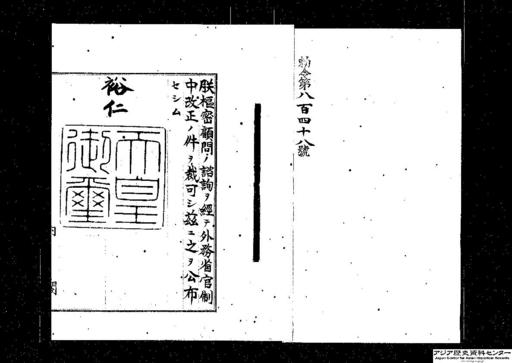 勅令第八百四十八號
朕樞密顧問ノ諮詢ヲ經テ外務省官制
中改正ノ件ヲ裁可シ茲ニ之ヲ公布
セシム
裕仁
天皇
御璽
内閣
アジア歴史資料センター
Japan Center for Asian Historical Records